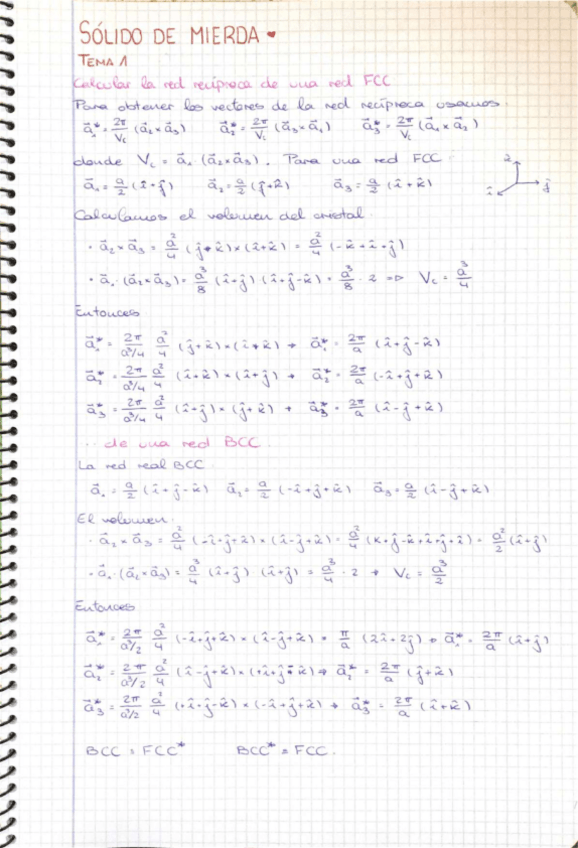 SÓLIDO DE MIERDA ♥
TEMA 1
Calcular la red recíproca de una red FCC
Para obtener los vectores de la red recíproca usamos:
a⃗₁* = 2π/V꜀ (a⃗₂×a⃗₃)   a⃗₂* = 2π/V꜀ (a⃗₃×a⃗₁)   a⃗₃* = 2π/V꜀ (a⃗₁×a⃗₂)
donde V꜀ = a⃗₁ (a⃗₂×a⃗₃). Para una red FCC:
a⃗₁ = a/2 (î+ĵ)   a⃗₂ = a/2 (ĵ+k̂)   a⃗₃ = a/2 (î+k̂)
Calculamos el volumen del cristal.
· a⃗₂×a⃗₃ = a²/4 (ĵ+k̂)×(î+k̂) = a²/4 (-k̂+î+ĵ)
· a⃗₁·(a⃗₂×a⃗₃) = a³/8 (î+ĵ) (î+ĵ-k̂) = a³/8 · 2 => V꜀ = a³/4
Entonces
a⃗₁* = 2π/(a³/4) a²/4 (ĵ+k̂)×(î+k̂) → a⃗₁* = 2π/a (î+ĵ-k̂)
a⃗₂* = 2π/(a³/4) a²/4 (î+k̂)×(î+ĵ) → a⃗₂* = 2π/a (-î+ĵ+k̂)
a⃗₃* = 2π/(a³/4) a²/4 (î+ĵ)×(ĵ+k̂) → a⃗₃* = 2π/a (î-ĵ+k̂)
... de una red BCC.
La red real BCC
a⃗₁ = a/2 (î+ĵ-k̂)   a⃗₂ = a/2 (-î+ĵ+k̂)   a⃗₃ = a/2 (î-ĵ+k̂)
El volumen:
· a⃗₂×a⃗₃ = a²/4 (-î+ĵ+k̂)×(î-ĵ+k̂) = a²/4 (k+ĵ-k+î+ĵ+î) = a²/2 (î+ĵ)
· a⃗₁·(a⃗₂×a⃗₃) = a³/4 (î+ĵ) (î+ĵ) = a³/4 · 2 → V꜀ = a³/2
Entonces
a⃗₁* = 2π/(a³/2) a²/4 (-î+ĵ+k̂)×(î-ĵ+k̂) = π/a (2î+2ĵ) → a⃗₁* = 2π/a (î+ĵ)
a⃗₂* = 2π/(a³/2) a²/4 (î-ĵ+k̂)×(+î+ĵ-k̂) → a⃗₂* = 2π/a (ĵ+k̂)
a⃗₃* = 2π/(a³/2) a²/4 (+î+ĵ-k̂)×(-î+ĵ+k̂) → a⃗₃* = 2π/a (î+k̂)
BCC = FCC*   BCC* = FCC.